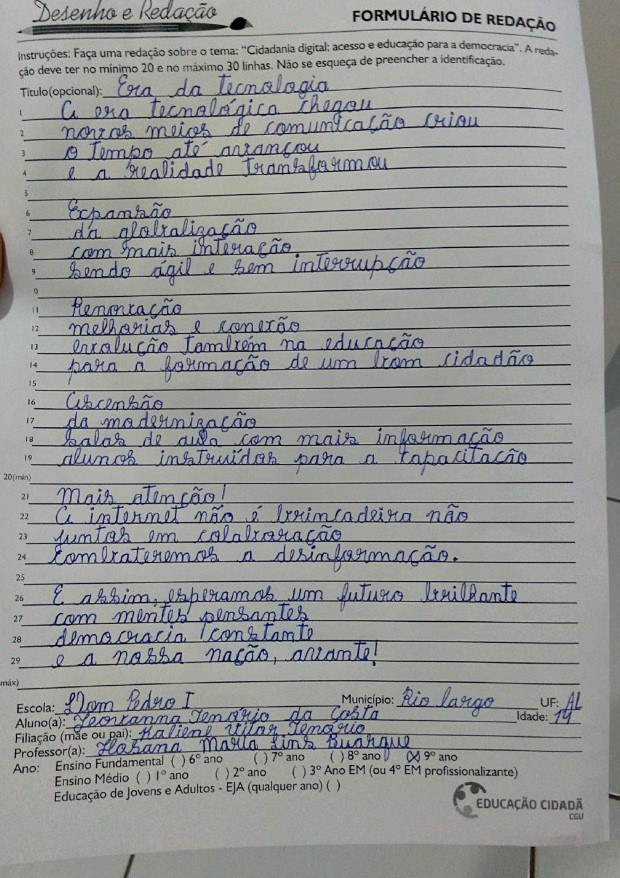 Desenho e Redação
FORMULÁRIO DE REDAÇÃO
Instruções: Faça uma redação sobre o tema: "Cidadania digital: acesso e educação para a democracia". A reda-
ção deve ter no mínimo 20 e no máximo 30 linhas. Não se esqueça de preencher a identificação.
Título(opcional): Era da tecnologia
1 A era tecnológica chegou
2 novos meios de comunicação criou
3 o tempo até avançou
4 e a realidade transformou
5
6 Expansão
7 da globalização
8 com mais interação
9 sendo ágil e sem interrupção
0
11 Renovação
12 melhorias e conexão
13 evolução também na educação
14 para a formação de um bom cidadão
15
16 Ascensão
17 da modernização
18 salas de aula com mais informação
19 alunos instruídos para a capacitação
20(min)
21 Mais atenção!
22 A internet não é brincadeira não
23 juntos em colaboração
24 Combateremos a desinformação.
25
26 E assim, esperamos um futuro brilhante
27 com mentes pensantes
28 democracia constante
29 e a nossa nação, avante!
máx)
Escola: Dom Pedro I Município: Rio largo UF: AL
Aluno(a): Geovanna Tenório da Costa Idade: 14
Filiação (mãe ou pai): Kaliene Vitor Tenório
Professor(a): Hosana Maria Lins Buarque
Ano: Ensino Fundamental ( ) 6º ano ( ) 7º ano ( ) 8º ano (x) 9º ano
Ensino Médio ( ) 1º ano ( ) 2º ano ( ) 3º Ano EM (ou 4º EM profissionalizante)
Educação de Jovens e Adultos - EJA (qualquer ano) ( )
EDUCAÇÃO CIDADÃ
CGU